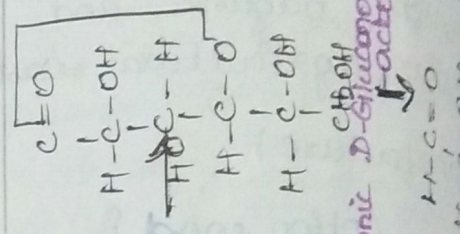 C=O
H-C-OH
HO-C-H
H-C-O
H-C-OH
CH₂OH
nic D-Glucono
lacto
H-C=O